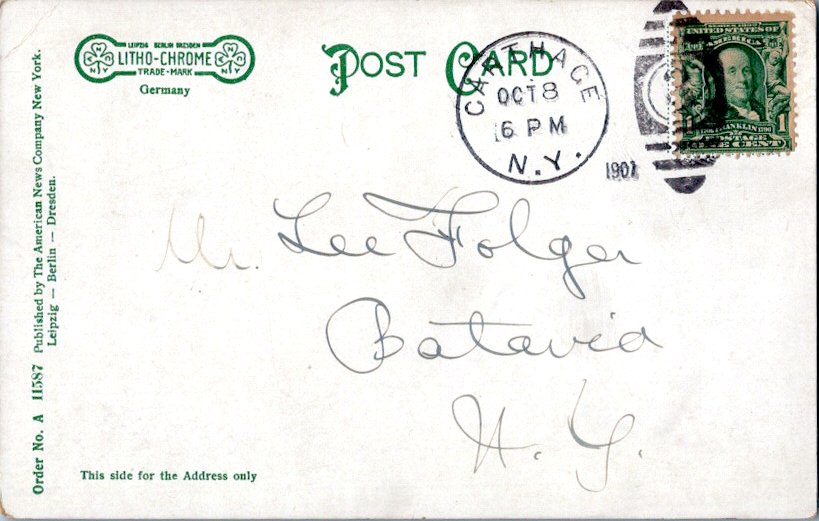 LEIPZIG BERLIN DRESDEN
LITHO-CHROME
TRADE-MARK
Germany
POST CARD
CARTHAGE
OCT 8
6 PM
N.Y.
1907
UNITED STATES OF
AMERICA
FRANKLIN
1 1
POSTAGE
ONE CENT
Mr. Lee Folger
Batavia
N. Y.
This side for the Address only
Order No. A 11587 Published by The American News Company New York.
Leipzig — Berlin — Dresden.